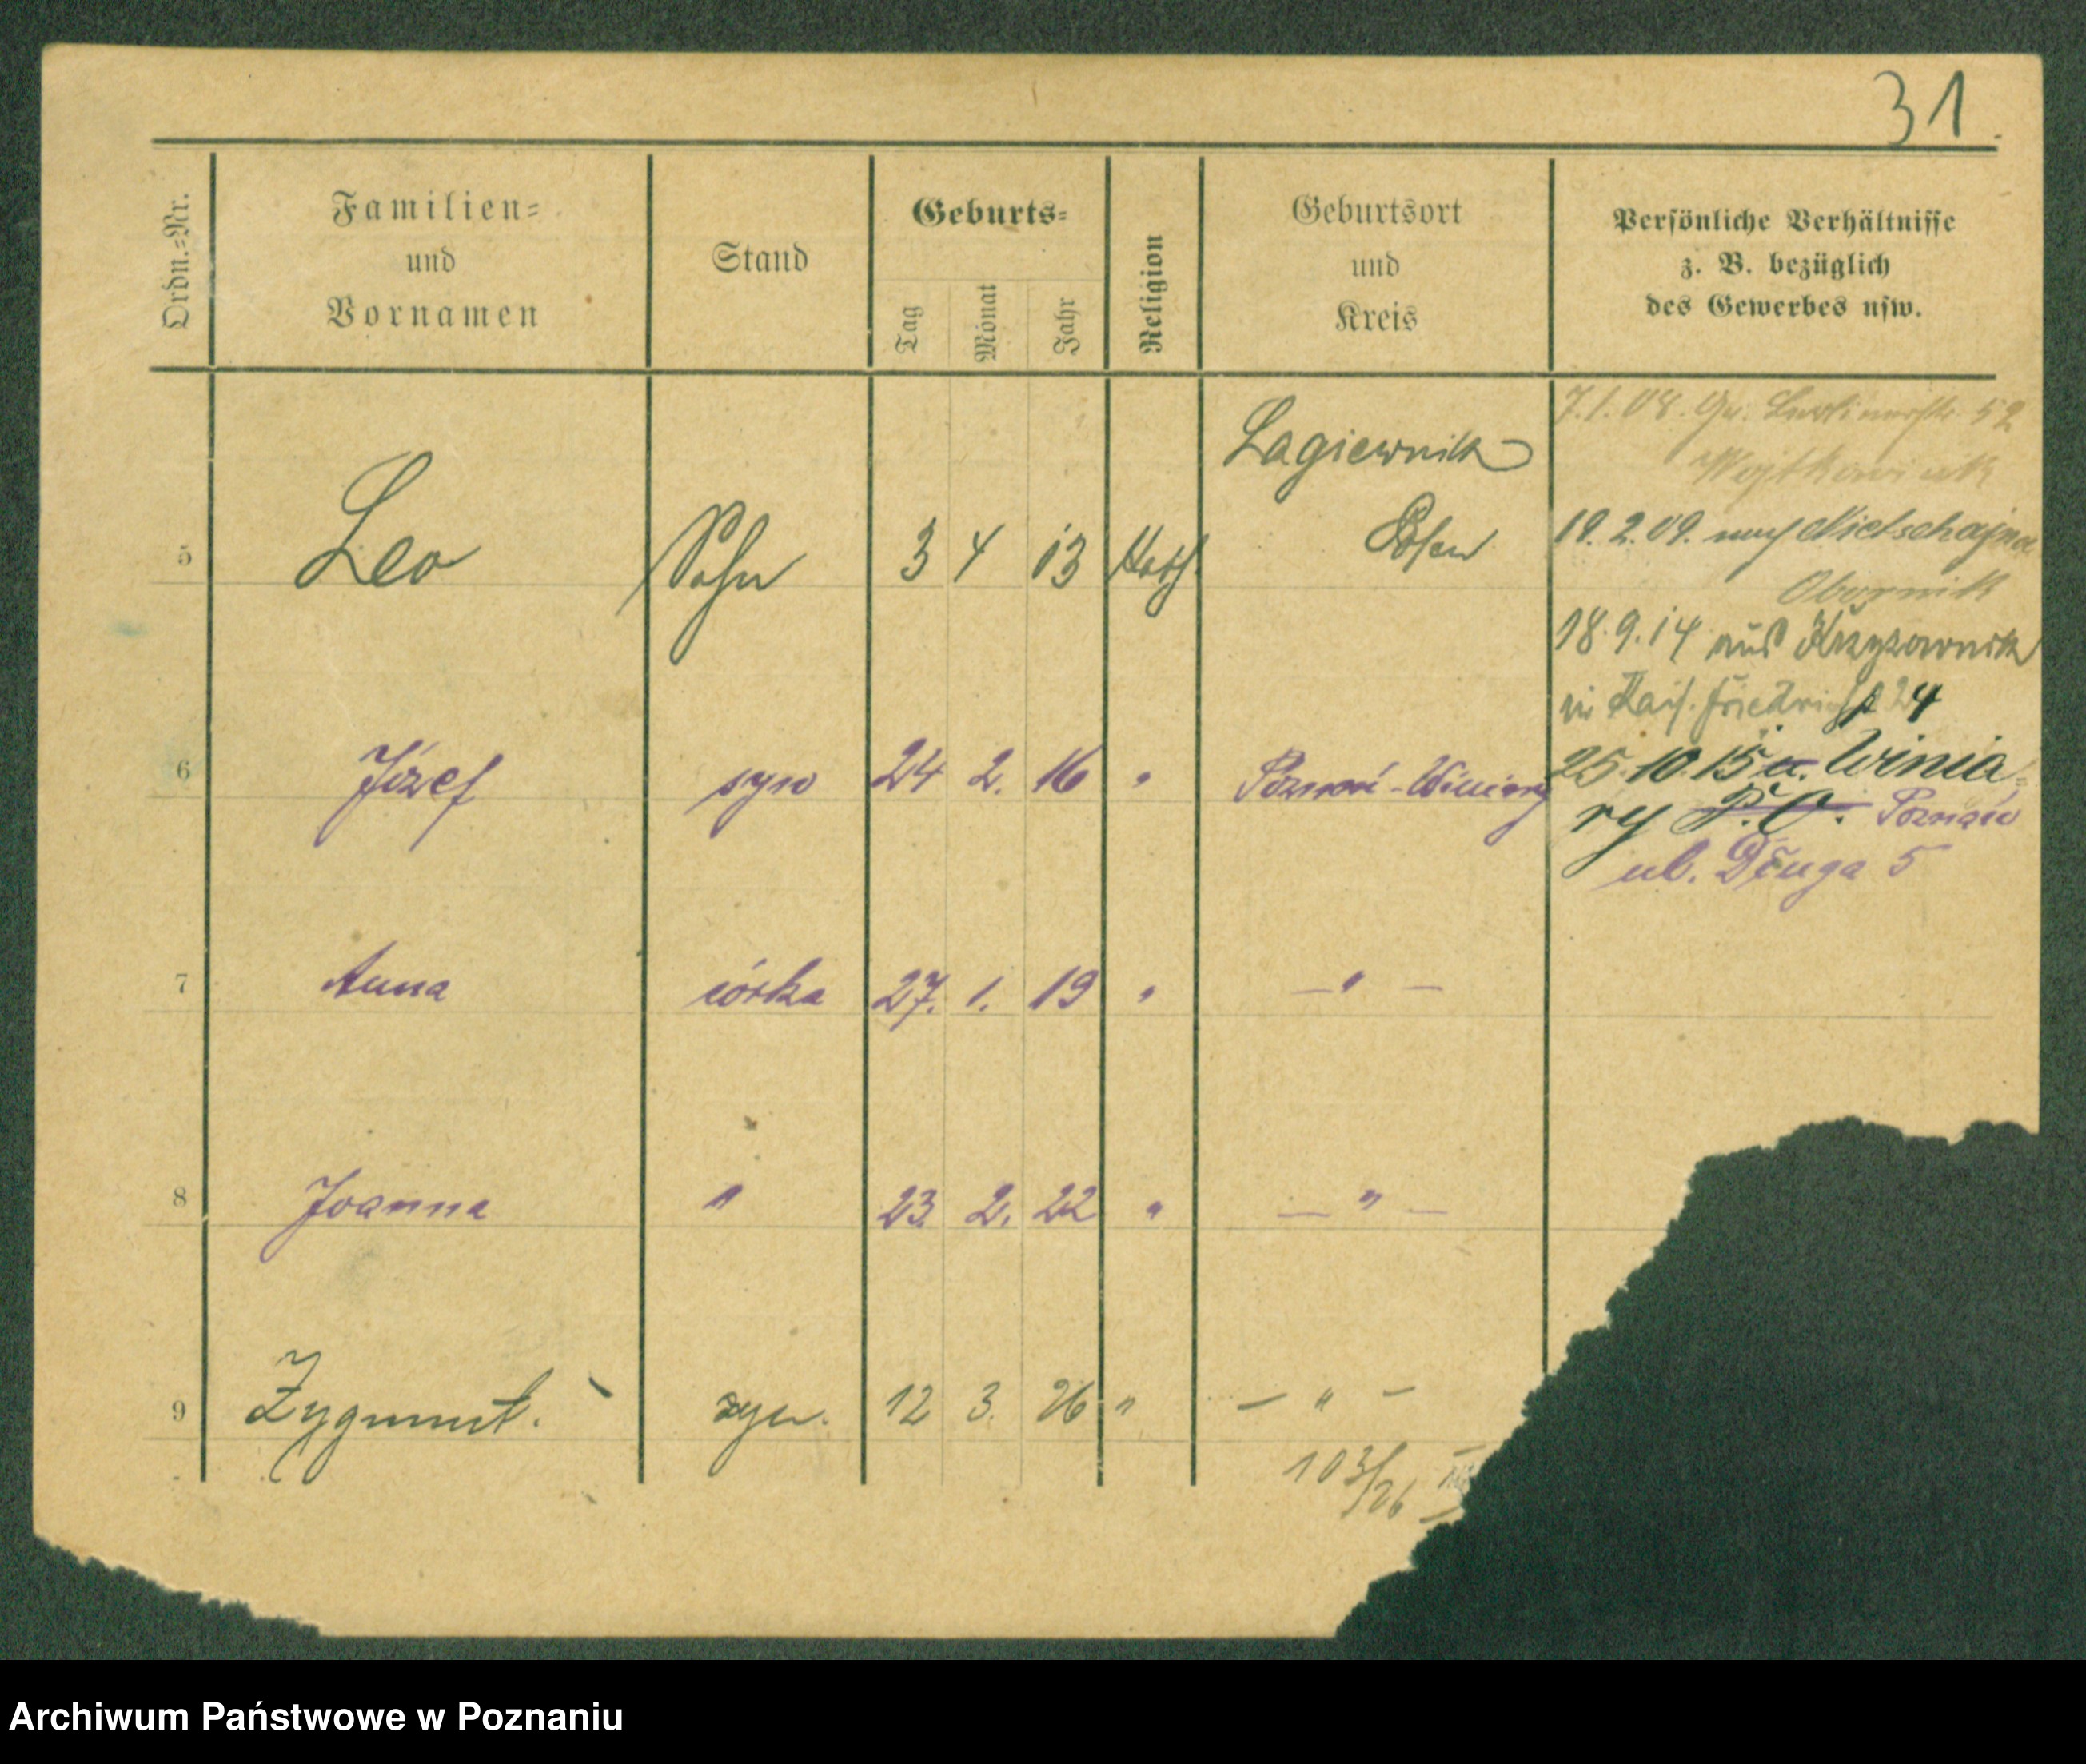 31.
Ordn.-Nr.
Familien-
und
Vornamen
Stand
Geburts-
Tag
Monat
Jahr
Religion
Geburtsort
und
Kreis
Persönliche Verhältnisse
z. B. bezüglich
des Gewerbes usw.
5 Leo Sohn 3 4 13 Kath
Lagiewnik
Posen
6 Józef syn 24 2. 16 " Poznań-Winiary
7 Anna córka 27. 1. 19 " — " —
8 Joanna " 23. 2. 22 " — " —
9 Zygmunt. syn. 12 3. 26 " — " —
103/26
7.1.08. 52
19.2.09. nach
Obornik
18.9.14 aus Krzyzownik
in Kais. Friedrichst 24
25.10.15 u. Winia-
ry P.O. Poznań
ul. Długa 5
Archiwum Państwowe w Poznaniu